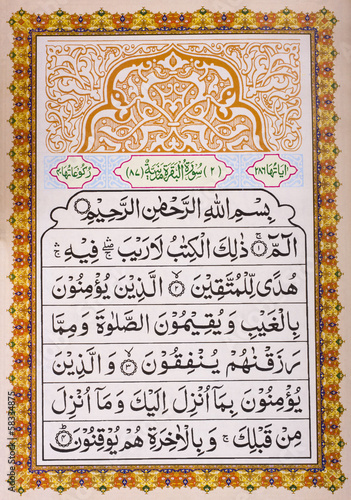 اٰيَاتُهَا ٢٨٦ (٢) سُوْرَةُ الْبَقَرَةِ مَدَنِيَّةٌ (٨٧) رُكُوْعَاتُهَا ٤٠
بِسْمِ اللّٰهِ الرَّحْمٰنِ الرَّحِيْمِ
الٓمّٓ ۝١ ذٰلِكَ الْكِتٰبُ لَا رَيْبَ ۛ فِيْهِ ۛ
هُدًى لِّلْمُتَّقِيْنَ ۝٢ الَّذِيْنَ يُؤْمِنُوْنَ
بِالْغَيْبِ وَيُقِيْمُوْنَ الصَّلٰوةَ وَمِمَّا
رَزَقْنٰهُمْ يُنْفِقُوْنَ ۝٣ وَالَّذِيْنَ
يُؤْمِنُوْنَ بِمَاۤ اُنْزِلَ اِلَيْكَ وَمَاۤ اُنْزِلَ
مِنْ قَبْلِكَ ۚ وَبِالْاٰخِرَةِ هُمْ يُوْقِنُوْنَ ۝٤
58334875